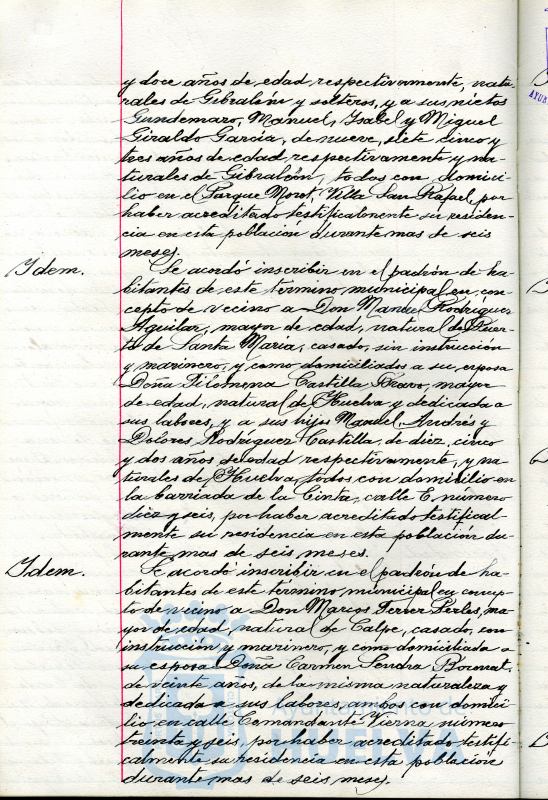 y doce años de edad respectivamente, natu-
rales de Gibraleón y solteros, y a sus nietos
Gundemaro, Manuel, Isabel y Miguel
Giraldo García, de nueve, siete cinco y
tres años de edad respectivamente y na-
turales de Gibraleón, todos con domici-
lio en el Parque Moret, Villa San Rafael, por
haber acreditado testificalmente su residen-
cia en esta población durante mas de seis
meses.
Idem.
Se acordó inscribir en el padrón de ha-
bitantes de este termino municipal en con-
cepto de vecino a Don Manuel Rodríguez
Aguilar, mayor de edad, natural de Puer-
to de Santa María, casado, sin instrucción
y marinero, y como domiciliados a su esposa
Doña Filomena Castilla mayor
de edad, natural de Huelva y dedicada a
sus labores, y a sus hijos Manuel, Andrés y
Dolores Rodríguez Castilla, de diez, cinco
y dos años de edad respectivamente, y na-
turales de Huelva, todos con domicilio en
la barriada de la Cinta, calle C, número
diez y seis, por haber acreditado testifical-
mente su residencia en esta población du-
rante mas de seis meses.
Idem.
Se acordó inscribir en el padrón de ha-
bitantes de este término municipal en concep-
to de vecino a Don Marcos Ferrer Perles, ma-
yor de edad, natural de Calpe, casado, con
instrucción y marinero, y como domiciliada a
su esposa Doña Carmen
de veinte años, de la misma naturaleza y
dedicada a sus labores, ambos con domici-
lio en calle Comandante Vierna número
treinta y seis, por haber acreditado testifi-
calmente su residencia en esta población
durante mas de seis meses.
HUELVA